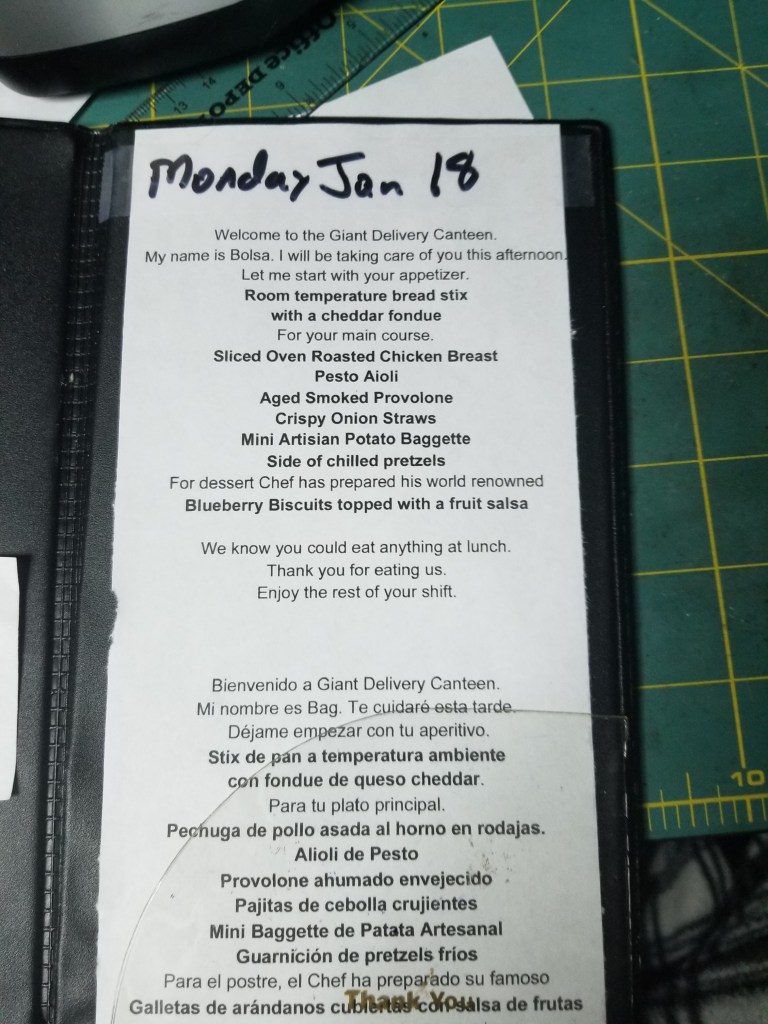 OFFICE DEPOT
14
13
9
Monday Jan 18
Welcome to the Giant Delivery Canteen.
My name is Bolsa. I will be taking care of you this afternoon.
Let me start with your appetizer.
Room temperature bread stix
with a cheddar fondue
For your main course.
Sliced Oven Roasted Chicken Breast
Pesto Aioli
Aged Smoked Provolone
Crispy Onion Straws
Mini Artisian Potato Baggette
Side of chilled pretzels
For dessert Chef has prepared his world renowned
Blueberry Biscuits topped with a fruit salsa
We know you could eat anything at lunch.
Thank you for eating us.
Enjoy the rest of your shift.
Bienvenido a Giant Delivery Canteen.
Mi nombre es Bag. Te cuidaré esta tarde.
Déjame empezar con tu aperitivo.
Stix de pan a temperatura ambiente
con fondue de queso cheddar.
Para tu plato principal.
Pechuga de pollo asada al horno en rodajas.
Alioli de Pesto
Provolone ahumado envejecido
Pajitas de cebolla crujientes
Mini Baggette de Patata Artesanal
Guarnición de pretzels fríos
Para el postre, el Chef ha preparado su famoso
Galletas de arándanos cubiertas con salsa de frutas
Thank You
10